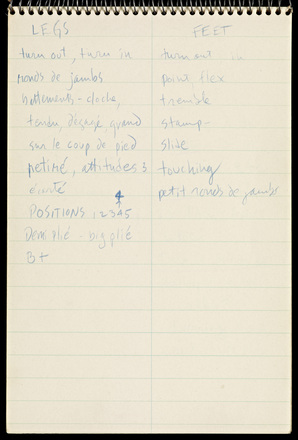 LEGS
turn out, turn in
ronds de jambs
battements - cloche,
tendu, dégagé, grand
sur le coup de pied
retiré, attitudes 3
4
POSITIONS 1 2 3 4 5
Demi plié - big plié
B+
FEET
turn out in
point, flex
tremble
stamp -
slide
touching
petit ronds de jambs